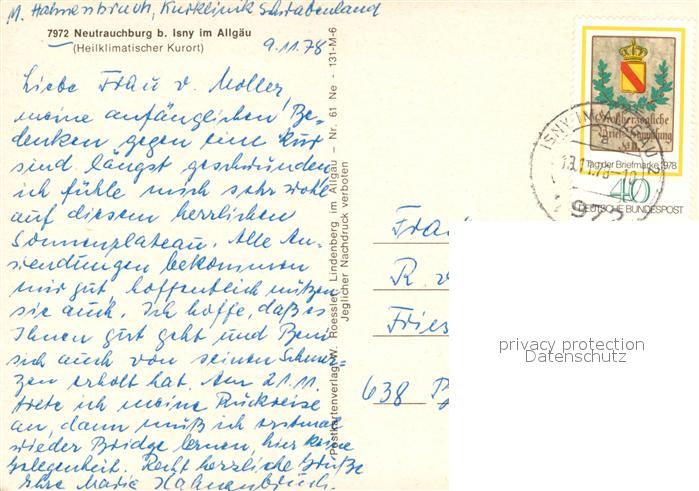 M. Hahnenbruch, Kurklinik Schwabenland
7972 Neutrauchburg b. Isny im Allgäu
(Heilklimatischer Kurort)
9.11.78
Liebe Frau v. Moller
meine anfänglichen Be-
denken gegen eine Kur
sind längst geschwunden
ich fühle mich sehr wohl
auf diesem herrlichen
Sonnenplateau. Alle An-
wendungen bekommen
mir gut, hoffentlich nützen
sie auch. Ich hoffe, daß es
Ihnen gut geht und Beni
sich auch von seinen Schmer-
zen erholt hat. Am 21.11.
trete ich meine Rückreise
an, dann muß ich erstmal
wieder Bridge lernen, hier keine
Gelegenheit. Recht herzliche Grüße
Ihre Maria Hahnenbruch.
Postkartenverlag W. Roessler, Lindenberg im Allgäu - Nr. 61 Ne - 131-M-6
Jeglicher Nachdruck verboten
Großherzogliche
Brief-Sammlung
Tag der Briefmarke 1978
40
DEUTSCHE BUNDESPOST
ISNY IM ALLGÄU 2
a
13.11.78-10
7972
Frau
R. v
Fries
638
privacy protection
Datenschutz